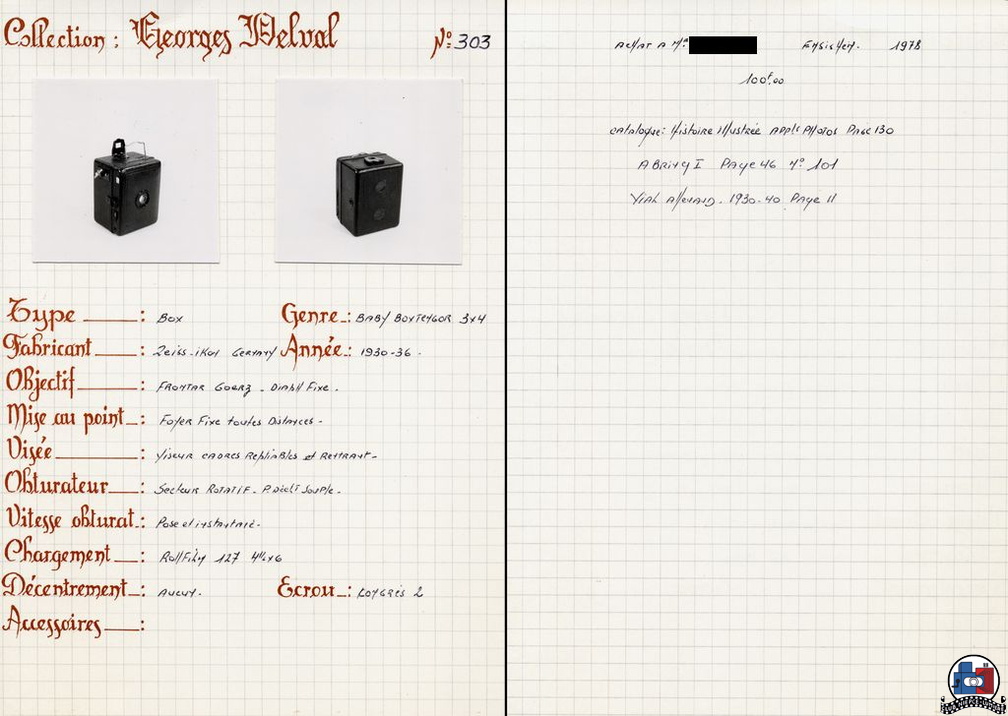 Collection : Georges Delval Nº 303
Type : Box Genre : BABY BOXTENGOR 3x4
Fabricant : Zeiss-iKon GERMANY Année : 1930-36.
Objectif : FRONTAR Goerz - Diaph Fixe.
Mise au point : FoyER Fixe toutes Distances -
Visée : Viseur CADRES RepliABles et REntrant-
Obturateur : Secteur RotATiF - P. Décl^t Souple.
Vitesse obturat. : Pose et instantané-
Chargement : RollFilm 127 4½x6
Décentrement : AUCUN. Ecrou : CONGRÈS 2
Accessoires :
ACHAT A Mr ENSisHeim. 1978
100F,00
catalogue: Histoire Illustrée APPls PHotos PAGE 130
ABRing I PAge 46 Nº 101
ViAL AlleMAND - 1930-40 PAge 11